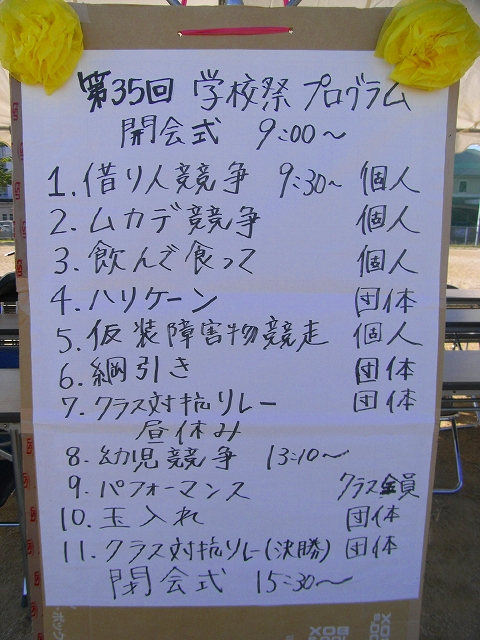 第35回 学校祭 プログラム
開会式 9:00～
1. 借り人競争 9:30～ 個人
2. ムカデ競争 個人
3. 飲んで食って 個人
4. ハリケーン 団体
5. 仮装障害物競走 個人
6. 綱引き 団体
7. クラス対抗リレー 団体
昼休み
8. 幼児競争 13:10～
9. パフォーマンス クラス全員
10. 玉入れ 団体
11. クラス対抗リレー(決勝) 団体
閉会式 15:30～